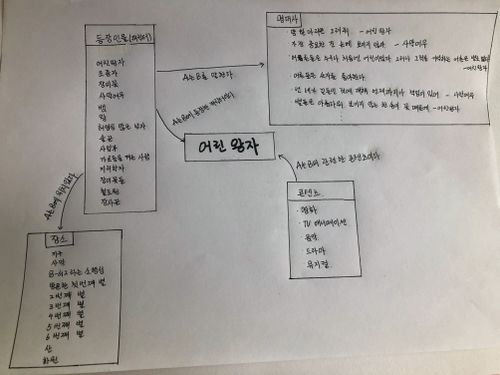 등장인물(캐릭터)
어린왕자
조종자
장미꽃
사막여우
뱀
왕
허영심 많은 남자
술꾼
사업가
가로등을 켜는 사람
지리학자
장미꽃들
철도원
장사꾼
명대사
- 어린왕자
가장 중요한 건 눈에 보이지 않아 - 사막여우
어른들은 누구나 처음엔 어린이였다. 그러나 그것을 기억하는 어른은 별로 없다
- 어린왕자
어른들은 숫자를 좋아한다
넌 네가 길들인 것에 대해 언제까지나 책임이 있어 - 사막여우
별들은 아름다워. 보이지 않는 한 송이 꽃 때문에 - 어린왕자
A는 B를 말한다
A는 B에 등장한 캐릭터이다
어린 왕자
A는 B와 관련한 콘텐츠이다
콘텐츠
· 영화
· TV 애니메이션
· 음악
· 드라마
· 뮤지컬
장소
지구
사막
B-612라는 소행성
첫 번째 별
2번째 별
3번째 별
4번째 별
5번째 별
6번째 별
산
화원